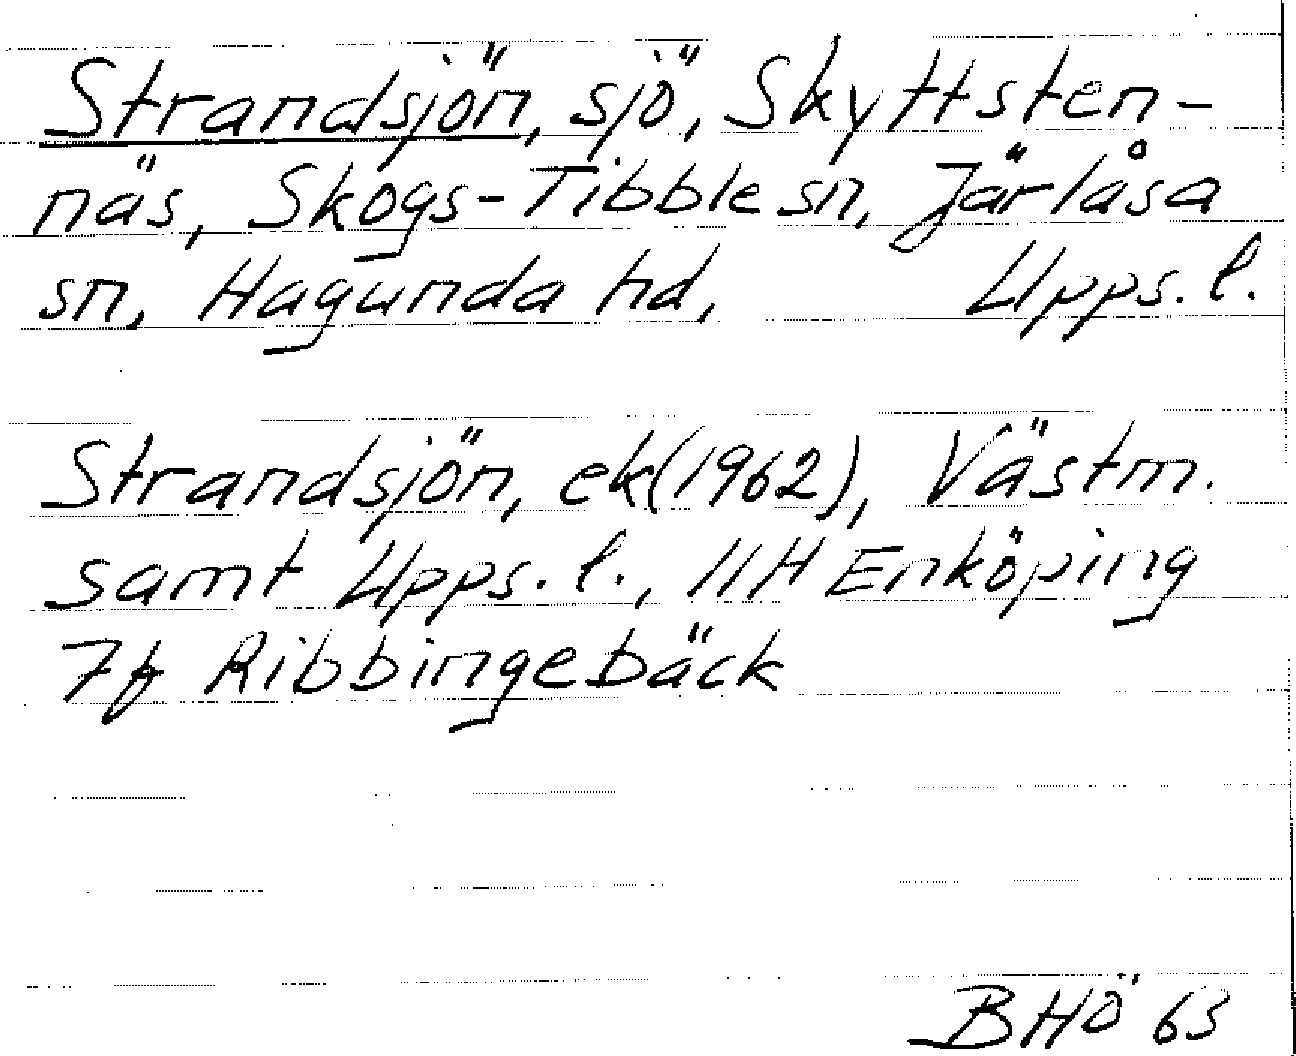 Strandsjön, sjö, Skyttsten-
näs, Skogs-Tibble sn, Järlåsa
sn, Hagunda hd, Upps. l.
Strandsjön, ek(1962), Västm.
samt Upps. l., 11H Enköping
7f Ribbingebäck
BHÖ 63